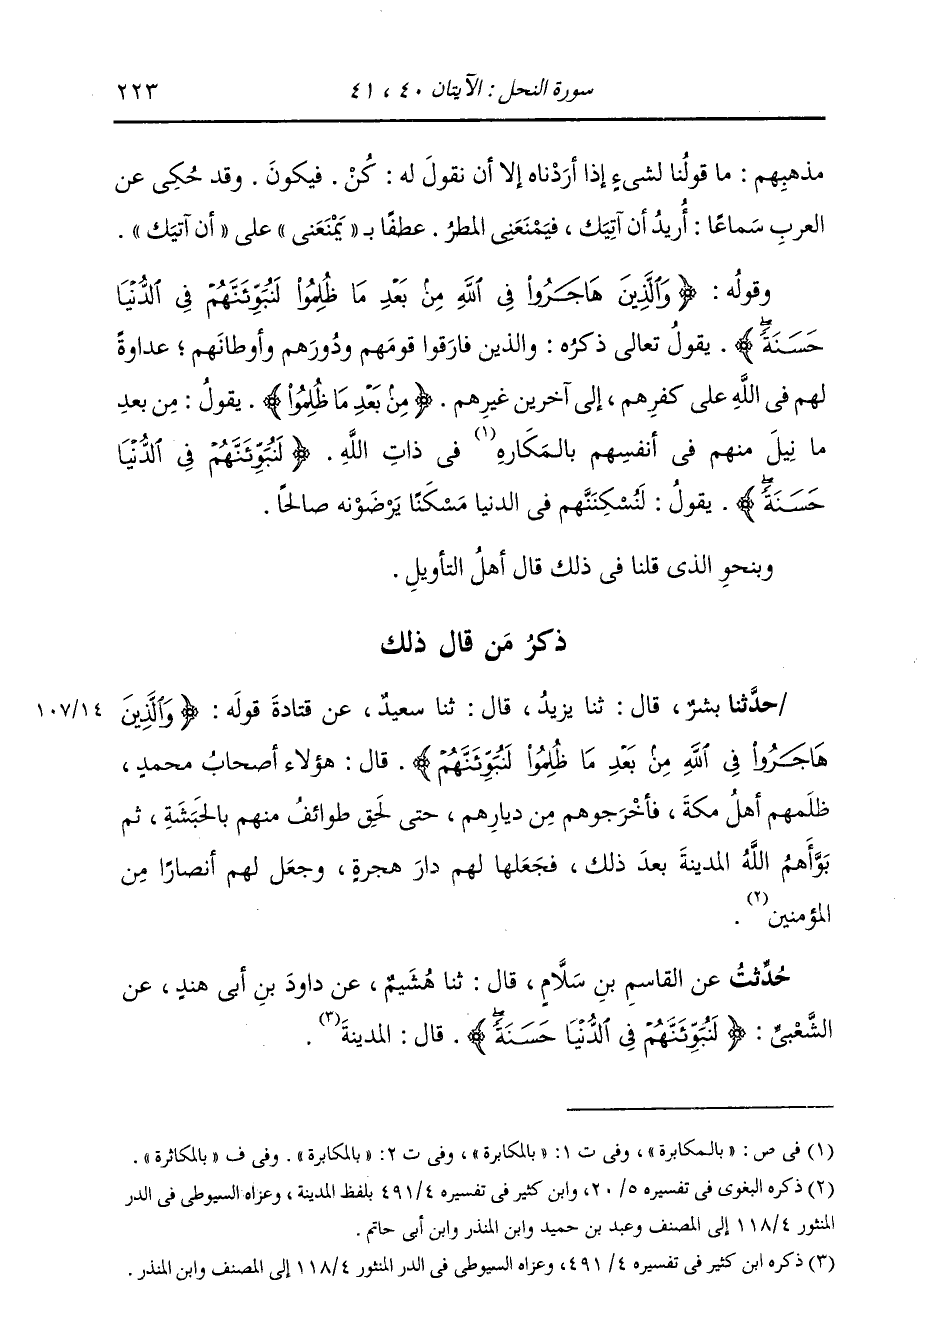 سورة النحل : الآيتان ٤٠ ، ٤١
٢٢٣
مذهبِهم : ما قولُنا لشىءٍ إذا أرَدْناه إلا أن نقولَ له : كُنْ . فيكونَ . وقد حُكِى عن
العربِ سَماعًا : أُريدُ أن آتِيَك ، فيَمْنَعَنى المطرُ . عطفًا بـ « يَمْنَعَنى » على « أن آتيَك » .
وقولُه : ﴿ وَٱلَّذِينَ هَاجَرُوا۟ فِى ٱللَّهِ مِنۢ بَعْدِ مَا ظُلِمُوا۟ لَنُبَوِّئَنَّهُمْ فِى ٱلدُّنْيَا
حَسَنَةً ۖ ﴾ . يقولُ تعالى ذكرُه : والذين فارَقوا قومَهم ودُورَهم وأوطانَهم ؛ عداوةً
لهم فى اللَّهِ على كفرِهم ، إلى آخرين غيرِهم . ﴿ مِنۢ بَعْدِ مَا ظُلِمُوا۟ ﴾ . يقولُ : مِن بعدِ
ما نِيلَ منهم فى أنفسِهم بالمَكَارِهِ(١) فى ذاتِ اللَّهِ . ﴿ لَنُبَوِّئَنَّهُمْ فِى ٱلدُّنْيَا
حَسَنَةً ۖ ﴾ . يقولُ : لَنُسْكِنَنَّهم فى الدنيا مَسْكَنًا يَرْضَوْنه صالحًا .
وبنحوِ الذى قلنا فى ذلك قال أهلُ التأويلِ .
ذكرُ مَن قال ذلك
/حدَّثنا بشرٌ ، قال : ثنا يزيدُ ، قال : ثنا سعيدٌ ، عن قتادةَ قولَه : ﴿ وَٱلَّذِينَ
١٠٧/١٤
هَاجَرُوا۟ فِى ٱللَّهِ مِنۢ بَعْدِ مَا ظُلِمُوا۟ لَنُبَوِّئَنَّهُمْ ﴾ . قال : هؤلاء أصحابُ محمدٍ ،
ظلَمهم أهلُ مكةَ ، فأخْرَجوهم مِن ديارِهم ، حتى لَحِق طوائفُ منهم بالحَبَشَةِ ، ثم
بَوَّأَهمُ اللَّهُ المدينةَ بعدَ ذلك ، فجَعَلها لهم دارَ هجرةٍ ، وجعَل لهم أنصارًا مِن
المؤمنين(٢) .
حُدِّثتُ عن القاسمِ بنِ سَلَّامٍ ، قال : ثنا هُشَيمٌ ، عن داودَ بنِ أبى هندٍ ، عن
الشَّعْبىِّ : ﴿ لَنُبَوِّئَنَّهُمْ فِى ٱلدُّنْيَا حَسَنَةً ۖ ﴾ . قال : المدينةَ(٣) .
(١) فى ص : « بالمكابرة » ، وفى ت ١ : « بالمكابرة » ، وفى ت ٢ : « بالمكابرة » . وفى ف « بالمكاثرة » .
(٢) ذكره البغوى فى تفسيره ٥/ ٢٠، وابن كثير فى تفسيره ٤٩١/٤ بلفظ المدينة ، وعزاه السيوطى فى الدر
المنثور ١١٨/٤ إلى المصنف وعبد بن حميد وابن المنذر وابن أبى حاتم .
(٣) ذكره ابن كثير فى تفسيره ٤/ ٤٩١، وعزاه السيوطى فى الدر المنثور ١١٨/٤ إلى المصنف وابن المنذر .